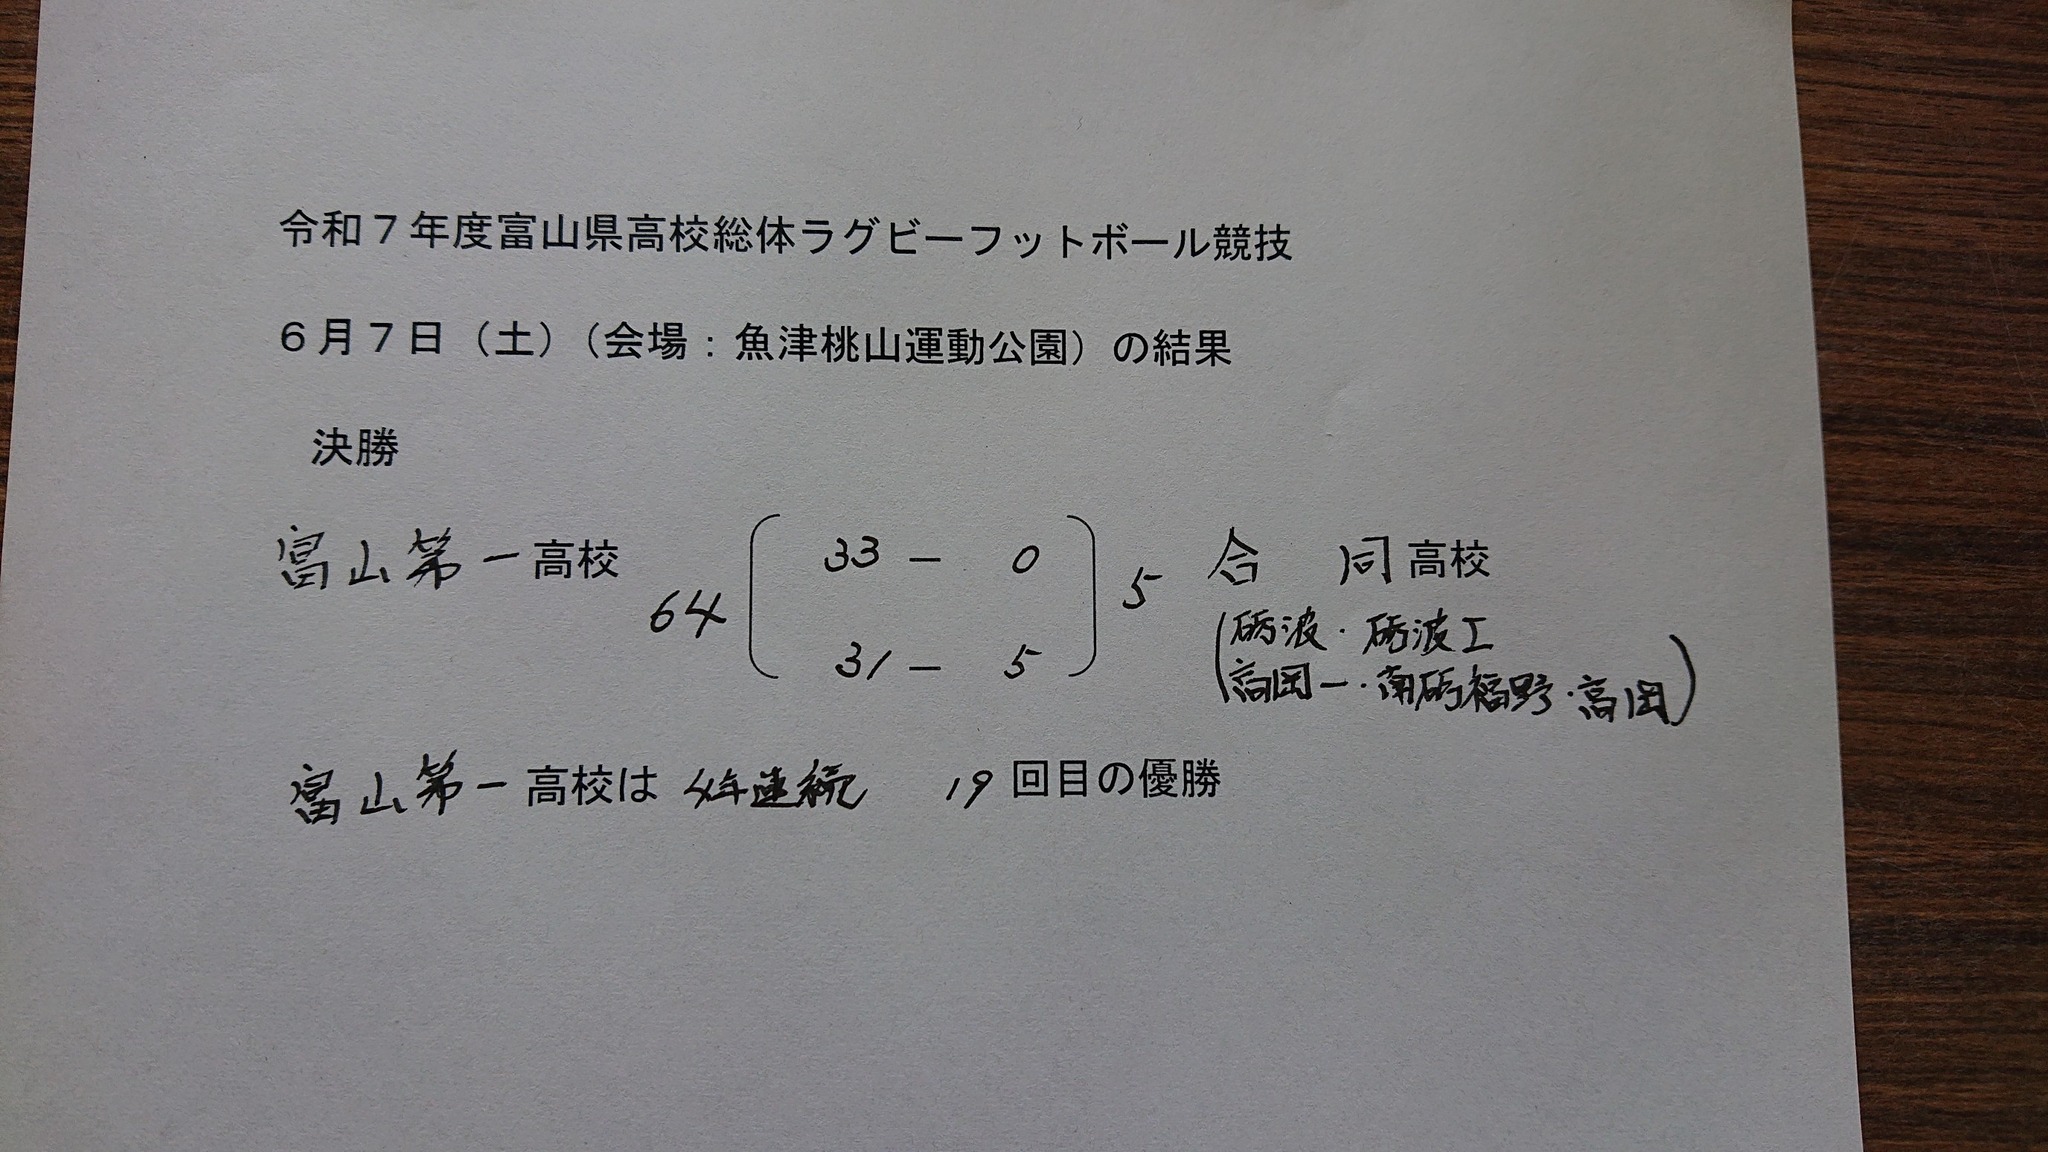 令和７年度富山県高校総体ラグビーフットボール競技
６月７日（土）（会場：魚津桃山運動公園）の結果
決勝
富山第一高校 64 33 － 0 5 合同高校
31 － 5
（砺波・砺波工
高岡一・南砺福野・高岡）
富山第一高校は 4年連続 19回目の優勝